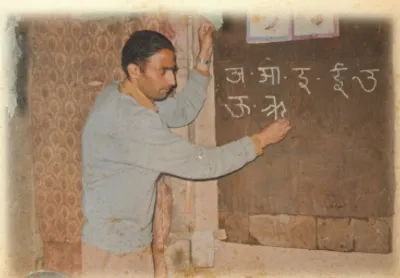 अ · आ · इ · ई उ
ऊ · ऋ